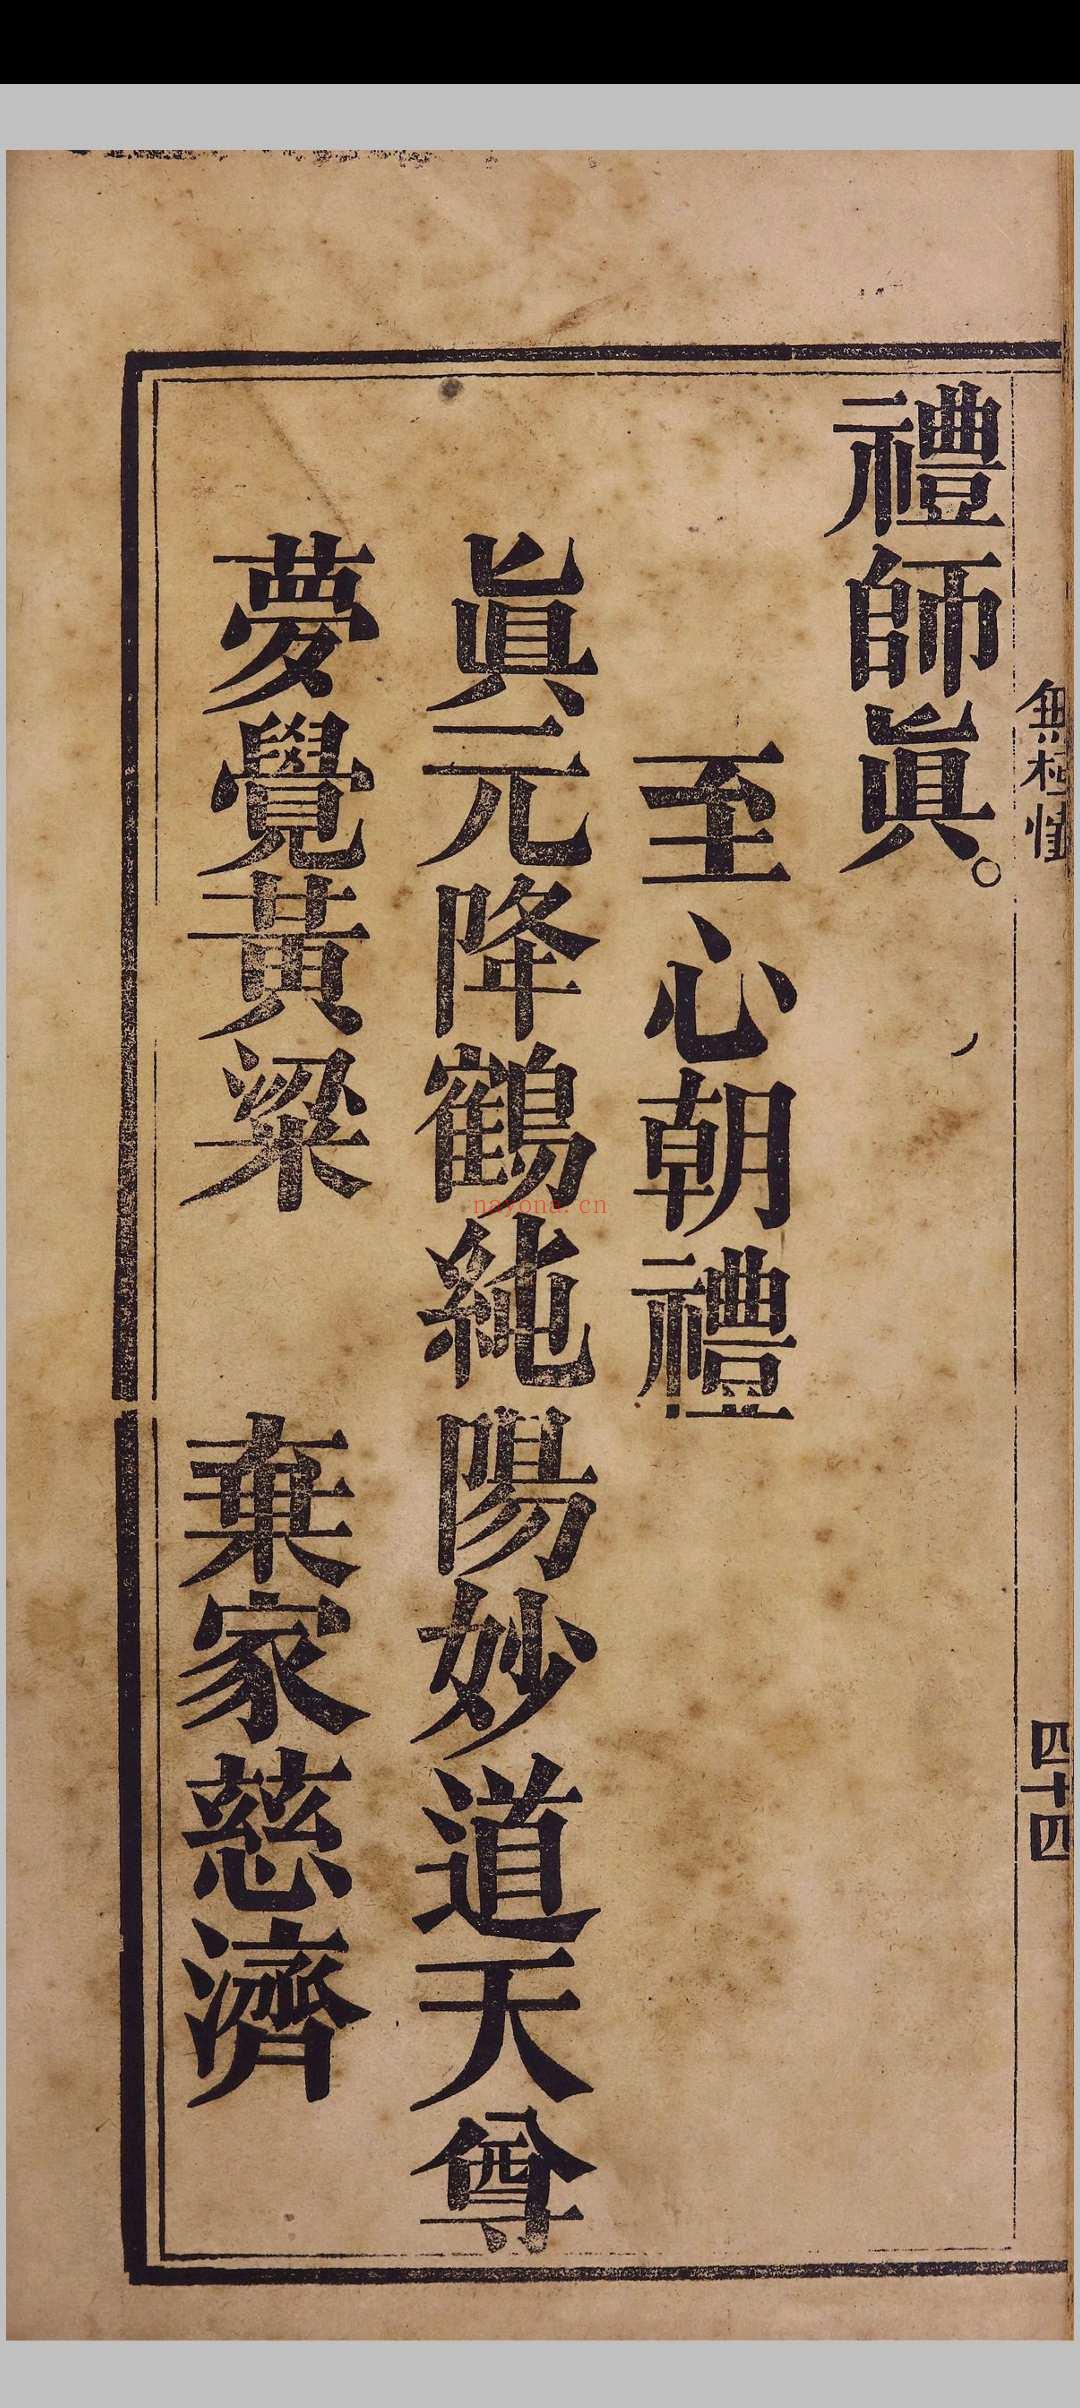 無極
四十四
禮師眞。
至心朝禮
眞元降鶴純陽妙道天尊
夢覺黃粱 棄家慈濟
nayona.cn